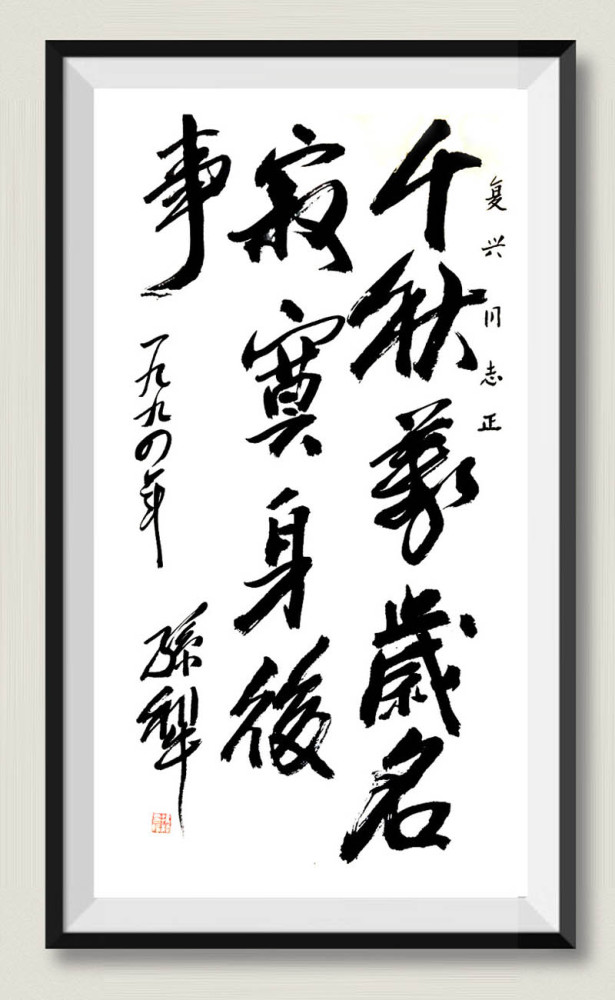 复兴同志正
千秋萬歲名
寂寞身後
事
一九九四年
孫犁